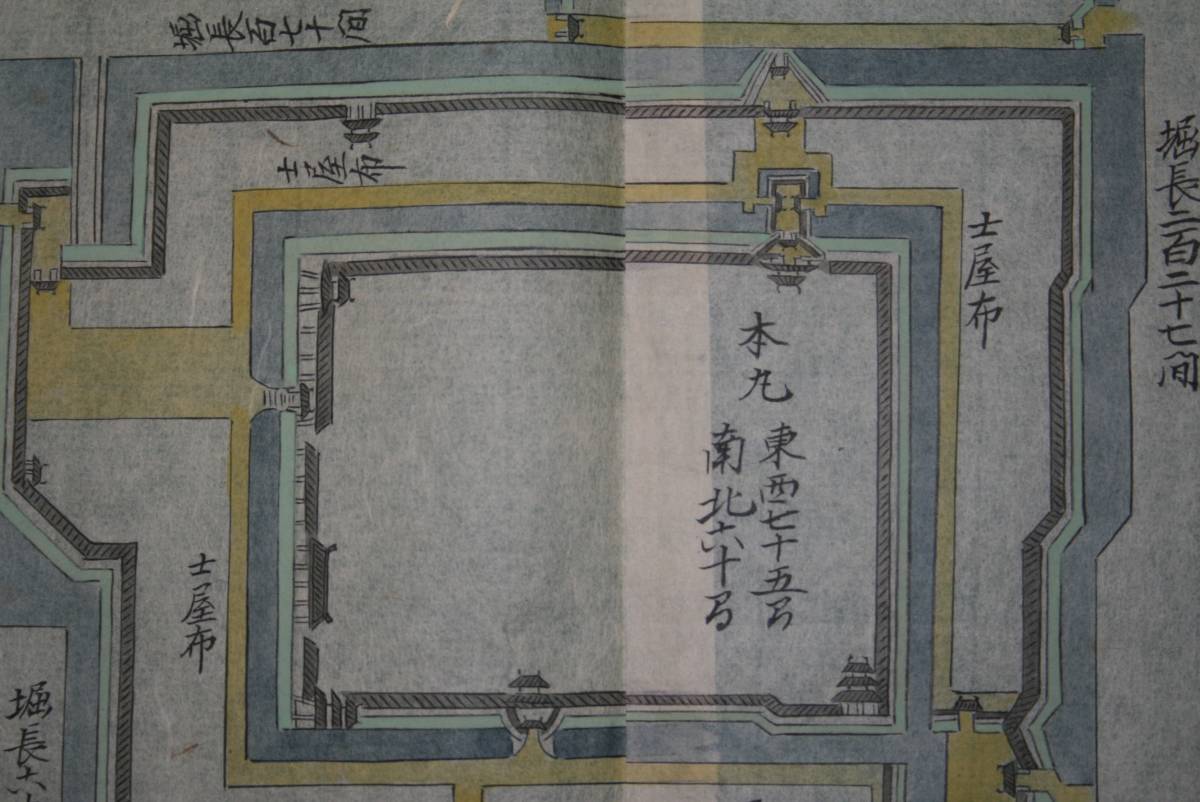 堀長百七十間
士屋布
堀長二百二十七間
士屋布
本丸
東西七十五間
南北六十間
士屋布
堀長六十